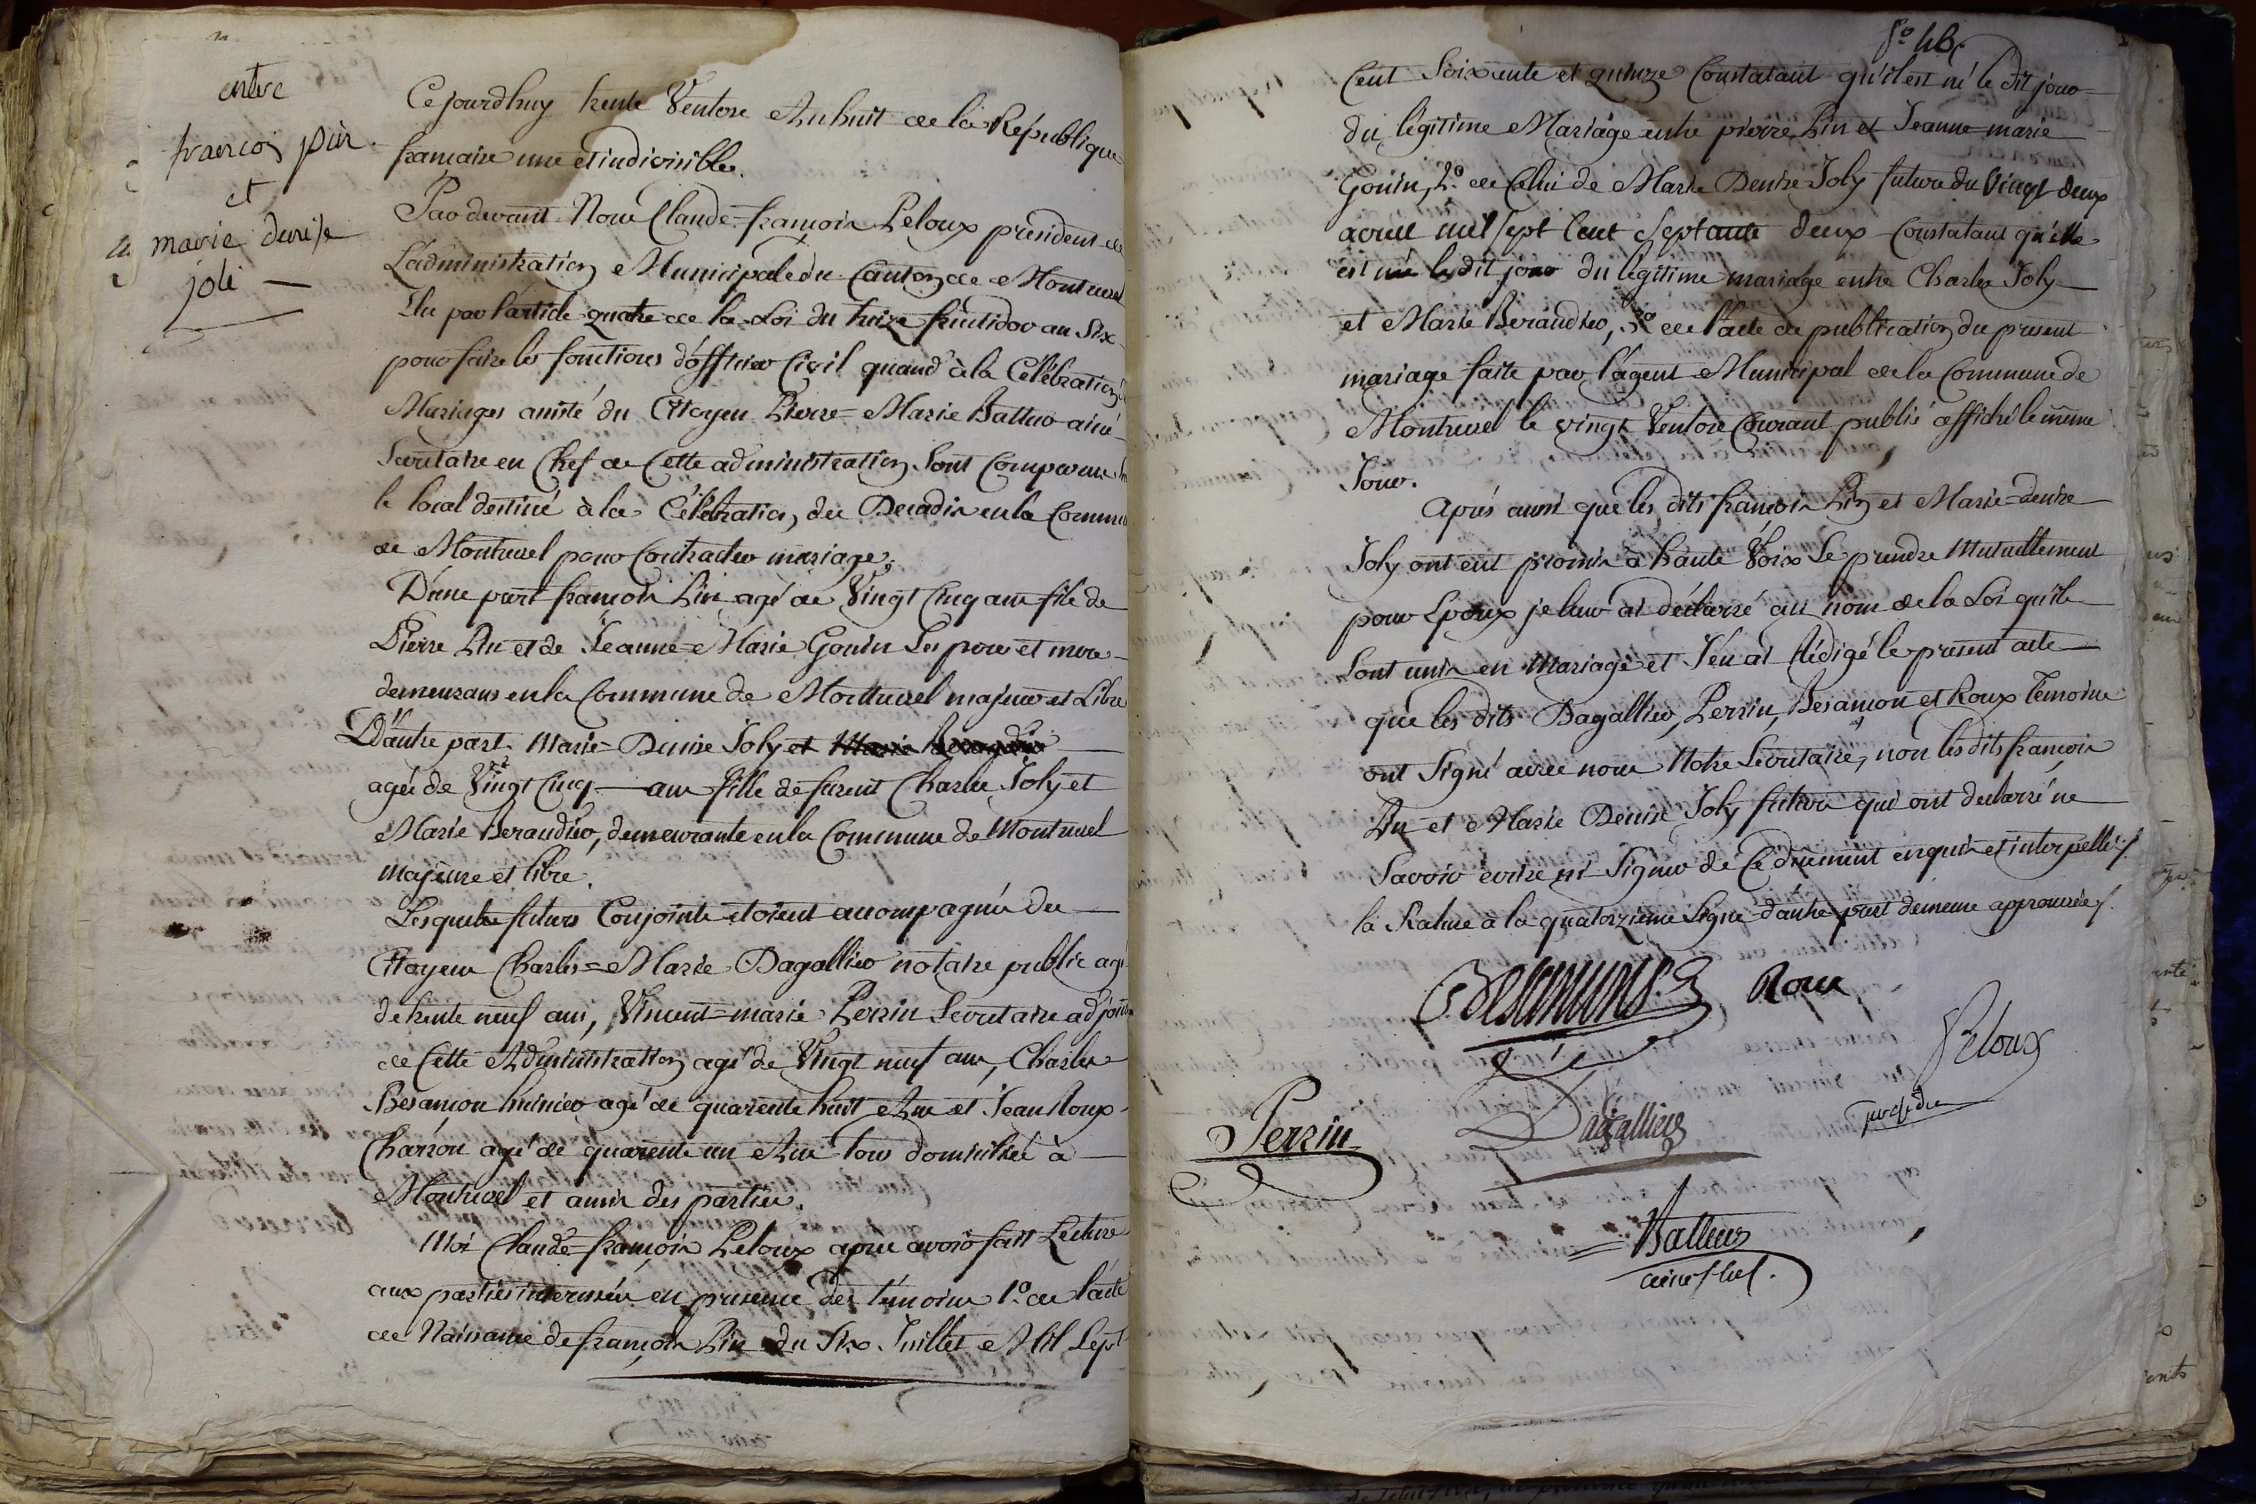 entre
francois pin
et
marie denise
joli
Cejourdhuy trente Ventose Anhuit de la Republique
francaise une et indivisible.
Pardevant Nous Claude=francois Peloux président de
L'administration Municipale du Canton de Montluel
Elu par l'article quatre de la Loi du treize fructidor an Six
pour faire les fonctions d'officier Civil quand à la Célébration
Mariages assisté du Citoyen Pierre=Marie Battur ainé
Secretaire en Chef de Cette administration Sont Comparus
le local destiné à la Célébration des Decadis en la Commu
de Montluel pour Contracter mariage;
D'une part francois Pin agé de Vingt Cinq ans fils de
Pierre Pin et de Jeanne=Marie Gonin Ses pere et mere
demeurans en la Commune de Montluel majeur et Libre
D'autre part Marie=Denise Joly et Marie
agée de Vingt Cinq ans fille de furent Charles Joly et
Marie Beraudier, demeurante en la Commune de Montluel
majeure et libre.
Lesquels futurs Conjoints étoient accompagnés des
Citoyens Charles=Marie Dagallier notaire public agé
de trente neuf ans, Vincent=marie Perrin Secretaire adjoint
de Cette Administration agé de Vingt neuf ans, Charles
Besançon huissier agé de quarente huit Ans et Jean Roux
Charron agé de quarente un Ans tous domiciliés à
Montluel et amis des parties.
Moi Claude=francois Peloux après avoir fait Lecture
aux parties interessées en présence des témoins 1.º de l'acte
de Naissance de francois Pin du Six Juillet Mil Sept
fº 46
Cent Soixente et quinze Constatant qu'il est né le dit jour
du légitime Mariage entre pierre Pin et Jeanne=marie
Gonin, 2.º de Celui de Marie Denise Joly future du Vingt deux
avril mil Sept Cent Septante deux Constatant qu'elle
est née le dit jour du légitime mariage entre Charles Joly
et Marie Beraudier, 3.º de l'acte de publication du present
mariage faite par l'agent Municipal de la Commune de
Montluel le vingt Ventose Courant publié affiché le même
Jour.
Aprés aussi que les dits francois Pin et Marie=denise
Joly ont eut promis à haute Voix Se prendre Mutuellement
pour Epoux je leur ai déclarré au nom de la Loi qu'ils
Sont unis en Mariage et J'en ai Rédigé le present acte
que les dits Dagallier, Perrin, Besançon et Roux témoins
ont Signé avec nous Notre Secretaire, non les dits francois
Pin et Marie Denise Joly futurs qui ont declarré ne
Savoir ecrire ni Signer de Ce duement enquis et interpellés
la Rature à la quatorzieme Ligne d'autre part demeure approuvée
Besançon Roux
Peloux
président
Perrin Dagallier
Battur
ainé